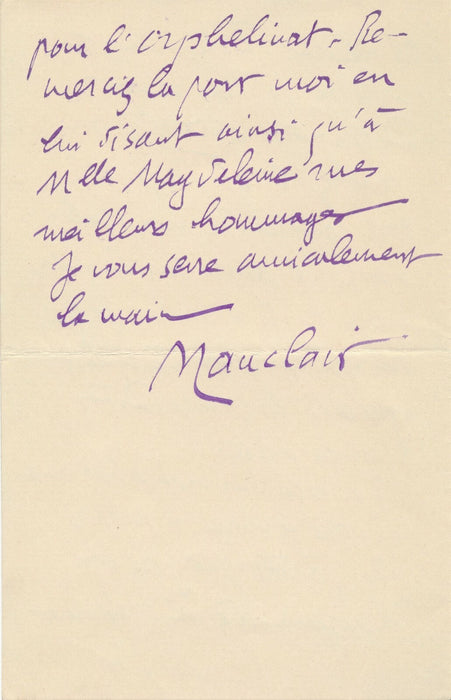 pour l'orphelinat. Re-
merciez la pour moi en
lui disant ainsi qu'à
Mlle Magdeleine mes
meilleurs hommages
Je vous serre amicalement
la main
Mauclair